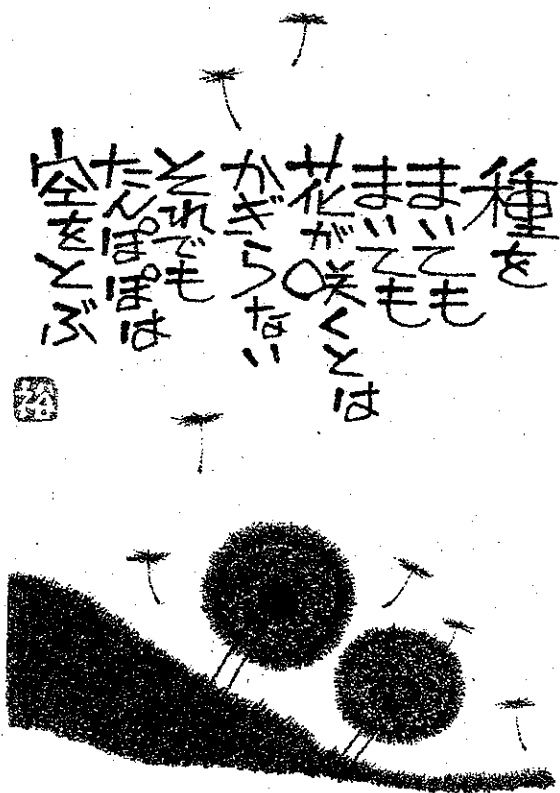 種を
まいても
まいても
花が咲くとは
かぎらない
それでも
たんぽぽは
空をとぶ